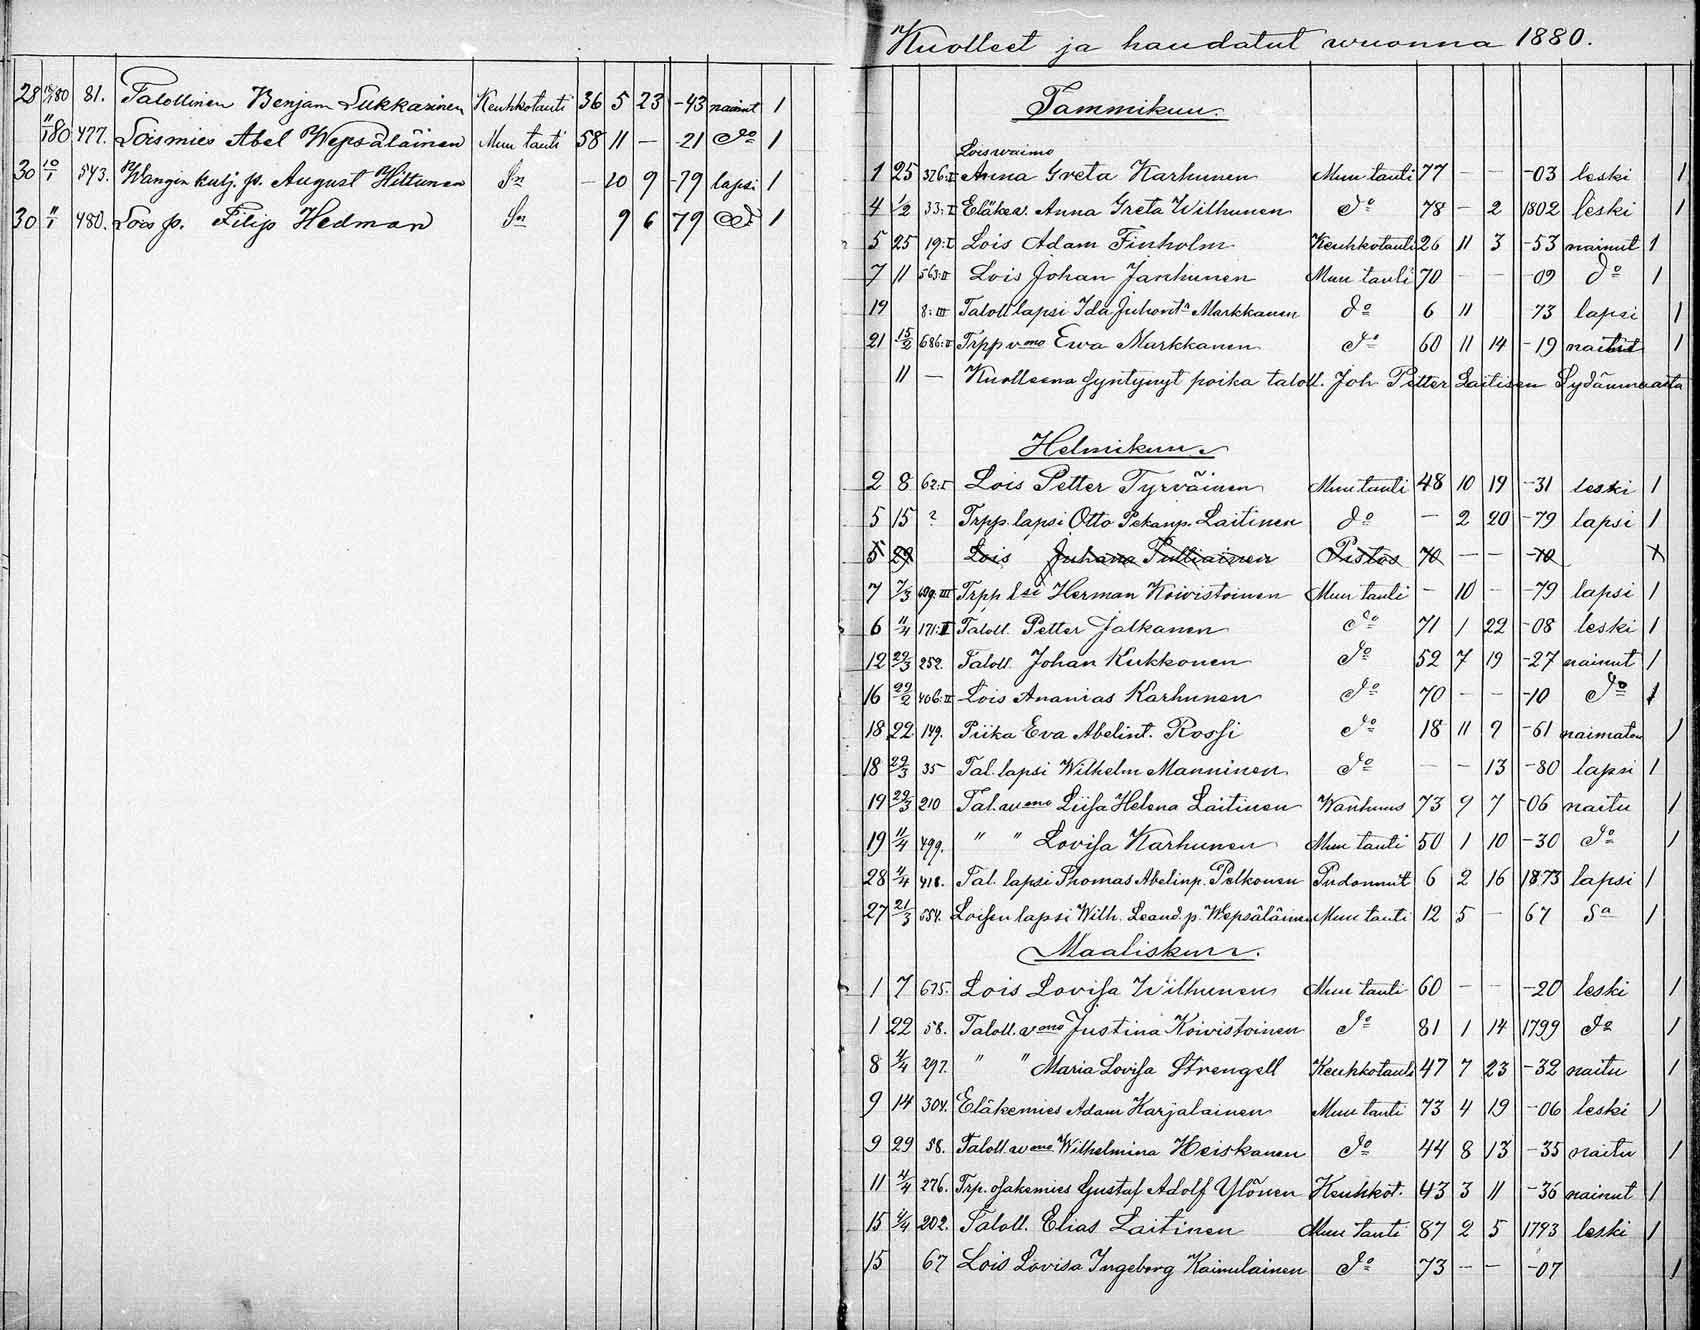 28 18/1 80 81. Talollinen Benjam Lukkarinen Keuhkotauti 36 5 23 -43 nainut 1
11/1 80 477. Loismies Abel Wepsäläinen Muu tauti 58 11 — -21 do 1
30 10/1 543. Wangin kulj. p. August Hittunen Sn — 10 9 -79 lapsi 1
30 11/1 480. Lois p. Filip Hedman Sn 9 6 79 do 1
Kuolleet ja haudatut wuonna 1880.
Tammikuu.
Loiswaimo
1 25 376:I Anna Greta Karhunen Muu tauti 77 — — -03 leski 1
4 1/2 33:I Eläkew. Anna Greta Wilhunen do 78 — 2 1802 leski 1
5 25 19:I Lois Adam Finholm Keuhkotauti 26 11 3 -53 nainut 1
7 11 563:II Lois Johan Jarhunen Muu tauti 70 — — -09 do 1
19 8:III Taloll lapsi Ida Juhont. Markkanen do 6 11 73 lapsi 1
21 15/2 686:II Trpp vmo Ewa Markkanen do 60 11 14 -19 naitu 1
11 — Kuolleena syntynyt poika taloll. Joh. Petter Laitisen Sydänmaasta
Helmikuu.
2 8 62:I Lois Petter Tyrväinen Muu tauti 48 10 19 -31 leski 1
5 15 ? Trpp. lapsi Otto Pekanp. Laitinen do — 2 20 -79 lapsi 1
5 29 Lois Juhana Pulliainen Pistos 70 — — -10
7 7/3 609:III Trpp lsi Herman Koivistoinen Muu tauti — 10 — -79 lapsi 1
6 11/4 171:II Taloll. Petter Jalkanen do 71 1 22 -08 leski 1
12 22/3 252. Taloll. Johan Kukkonen do 52 7 19 -27 nainut 1
16 22/2 406:II Lois Ananias Karhunen do 70 — — -10 do 1
18 22 149. Piika Eva Abelint. Rossi do 18 11 2 -61 naimaton 1
18 29/3 35 Tal. lapsi Wilhelm Manninen do — — 13 -80 lapsi 1
19 29/3 210 Tal. wmo Liisa Helena Laitinen Wanhuus 73 9 7 -06 naitu 1
19 11/4 499. " " Lovisa Karhunen Muu tauti 50 1 10 -30 do 1
28 4/4 418. Tal. lapsi Thomas Abelinp. Pelkonen Pudonnut 6 2 16 1873 lapsi 1
27 21/3 554. Loisen lapsi Wilh. Leand. p. Wepsäläinen Muu tauti 12 5 — 67 Sa 1
Maaliskuu.
1 7 675. Lois Lovisa Wilhunen Muu tauti 60 — — -20 leski 1
1 22 58. Taloll. vmo Justina Koivistoinen do 81 1 14 1799 do 1
8 4/4 297. " " Maria Lovisa Strengell Keuhkotauti 47 7 23 -32 naitu 1
9 14 304. Eläkemies Adam Karjalainen Muu tauti 73 4 19 -06 leski 1
9 29 58. Taloll. wmo Wilhelmina Heiskanen do 44 8 13 -35 naitu 1
11 4/4 276. Trp. osakemies Gustaf Adolf Ylönen Keuhkot. 43 3 11 -36 nainut 1
15 4/4 202. Taloll. Elias Laitinen Muu tauti 87 2 5 1793 leski 1
15 67 Lois Lovisa Ingeborg Kainulainen do 73 — — -07 1